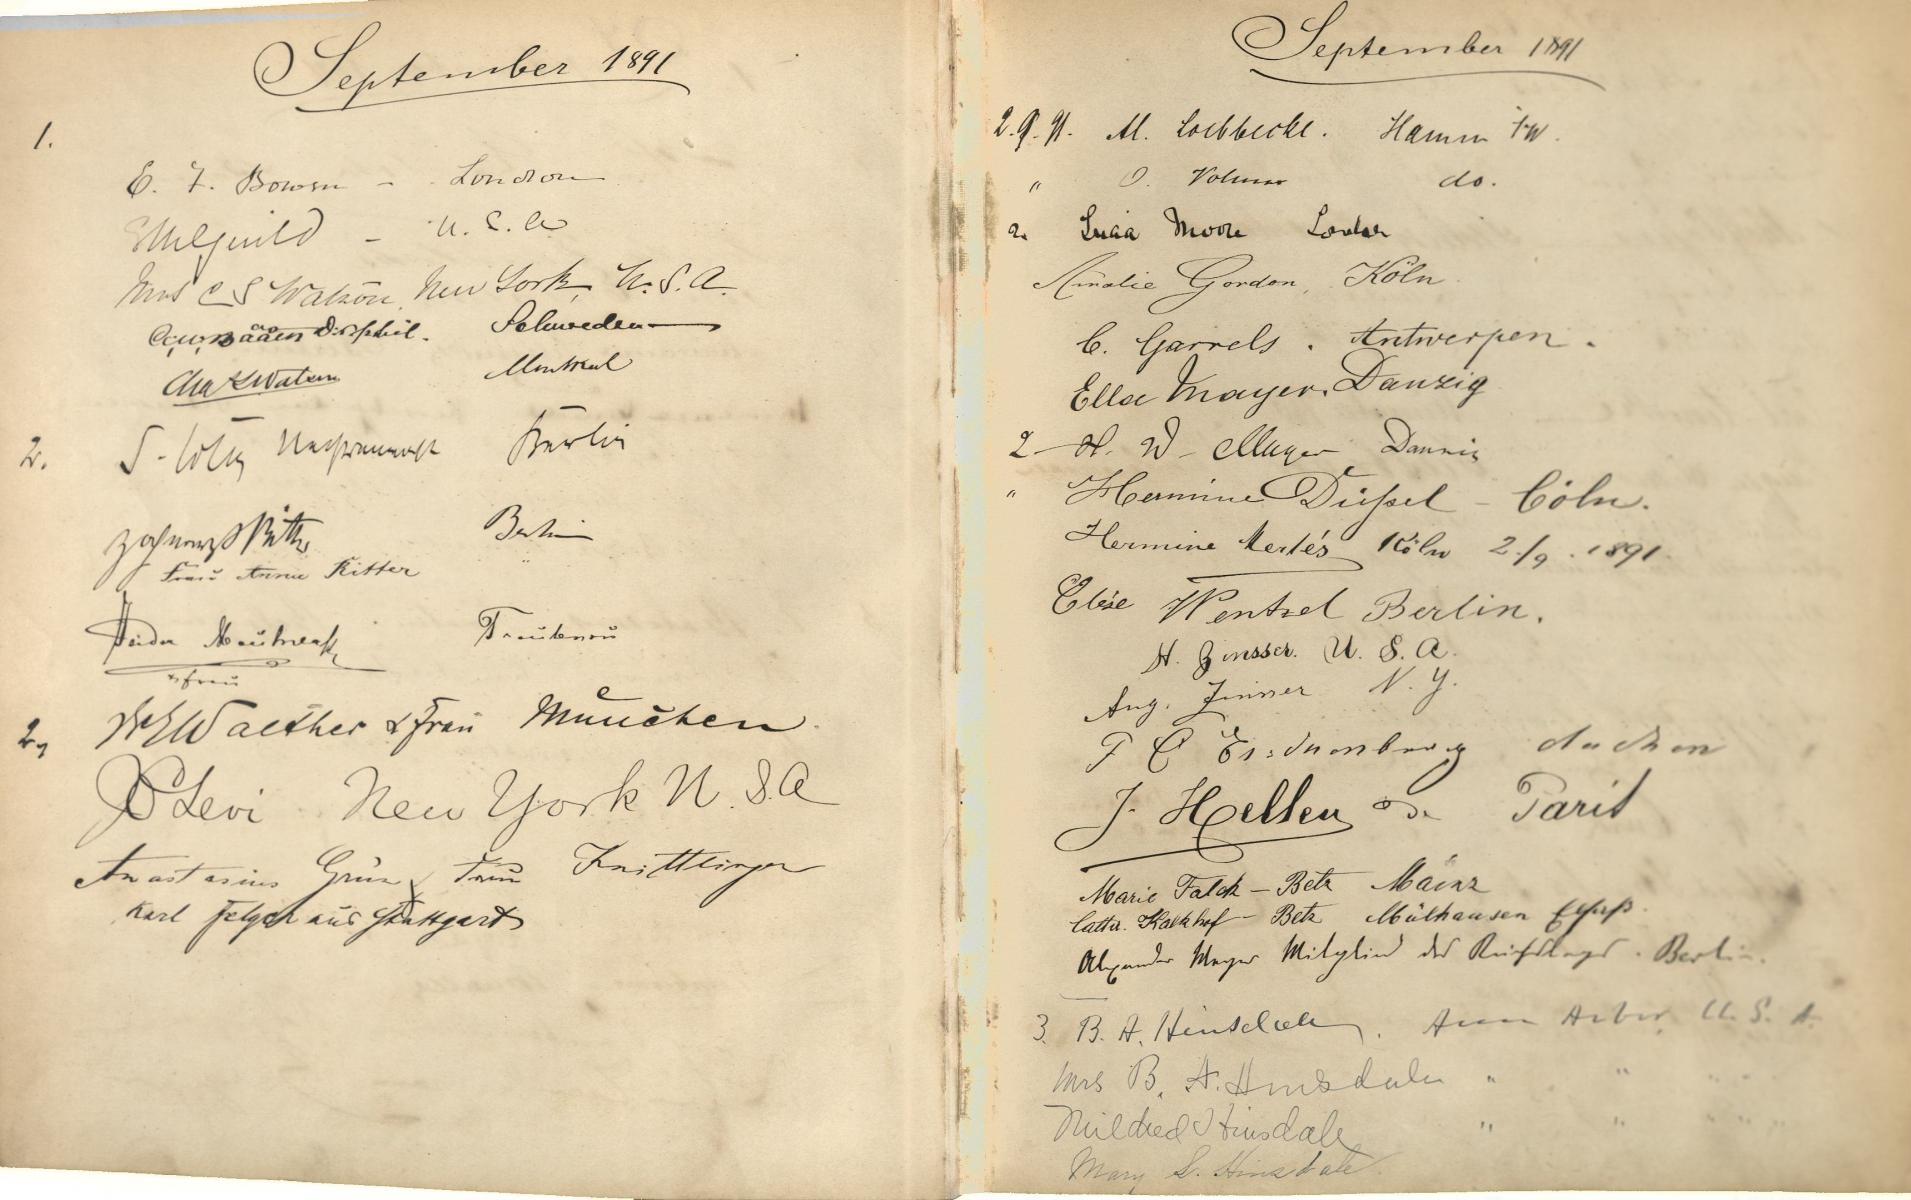 September 1891
1.
E. F. Bowen - London
- U. S. A
Mrs C S Watson, New York, U. S. A.
Schweden
Chas Watson Montreal
2. Berlin
Ritter Berlin
Frau Anna Ritter "
Trautenau
& Frau
Walther & Frau München
2.
Levi New York U. S. A
Anastasius Grün & Frau Knittlingen
Karl Felger aus Stuttgart
September 1891
2.9.91. M. Loebbecke. Hamm i/W.
" O. Volmer do.
2. Moore London
Amalie Gordon, Köln
C. Garrels. Antwerpen.
Ella Mayer. Danzig
2 - H. W. Mayer Danzig
" Hermine Düssel - Cöln.
Hermine Mertés Köln 2./9. 1891.
Elise Wentzel Berlin.
H. Zinsser. U. S. A.
Aug. Zinsser N. Y.
F C Aachen
J. Hellen Paris
Marie Falck - Betz Mainz
Cath. Kalkhof - Betz Mülhausen Elsaß.
Alexander Meyer Mitglied des Reichstags. Berlin.
3. B. A. Hinsdale, Ann Arbor, U. S. A.
Mrs B. A. Hinsdale " " " "
Mildred Hinsdale " " " "
Mary L. Hinsdale